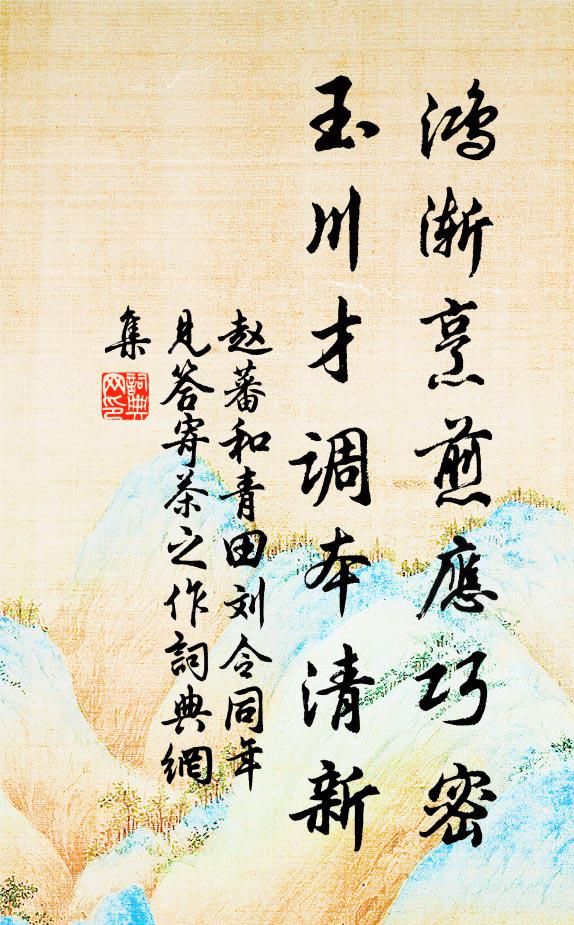 鸿渐烹煎應巧密
玉川才调本清新
赵蕃和青田刘令同年
见答寄茶之作詞典網
集
詞典
网印